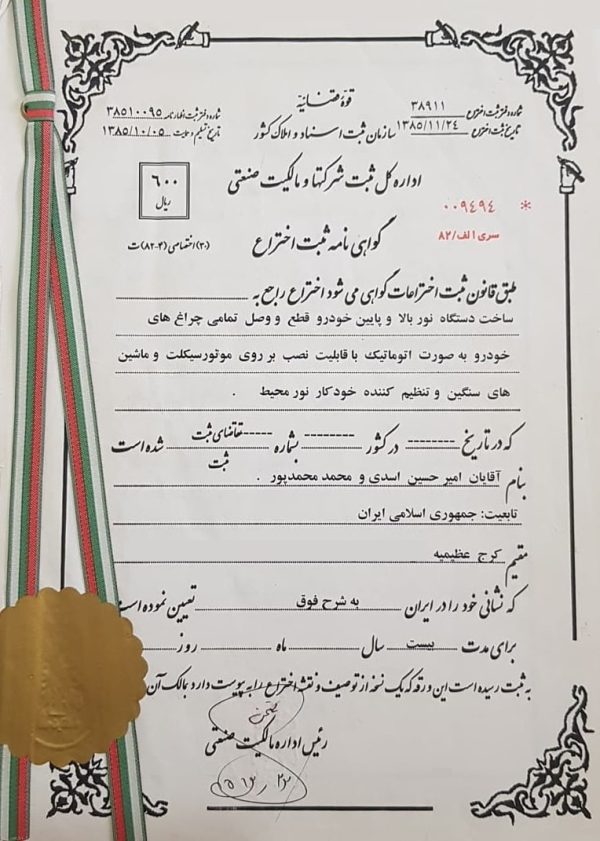 قوهٔ قضائیه
شماره دفتر ثبت اختراع ۳۸۹۱۱
تاریخ ثبت اختراع ۱۳۸۵/۱۱/۲۴
شماره دفتر ثبت اظهارنامه ۳۸۵۱۰۰۹۵
تاریخ تسلیم و حمایت ۱۳۸۵/۱۰/۰۵
سازمان ثبت اسناد و املاک کشور
اداره کل ثبت شرکتها و مالکیت صنعتی
۶۰۰
ریال
* ۰۰۹۴۹۴
سری ا الف/۸۲
گواهی نامه ثبت اختراع
(۳۰) اختصاصی (۴-۸۲) ت
طبق قانون ثبت اختراعات گواهی می شود اختراع راجع به
ساخت دستگاه نور بالا و پایین خودرو قطع و وصل تمامی چراغ های
خودرو به صورت اتوماتیک با قابلیت نصب بر روی موتورسیکلت و ماشین
های سنگین و تنظیم کننده خودکار نور محیط .
که در تاریخ -------- در کشور -------- بشماره ----- تقاضای ثبت شده است
ثبت
بنام آقایان امیر حسین اسدی و محمد محمدپور .
تابعیت: جمهوری اسلامی ایران
مقیم کرج عظیمیه
که نشانی خود را در ایران به شرح فوق تعیین نموده است
برای مدت بیست سال ماه روز
به ثبت رسیده است این ورقه که یک نسخه از توصیف و نقشه اختراع را به پیوست دارد بمالک آن
رئیس اداره مالکیت صنعتی